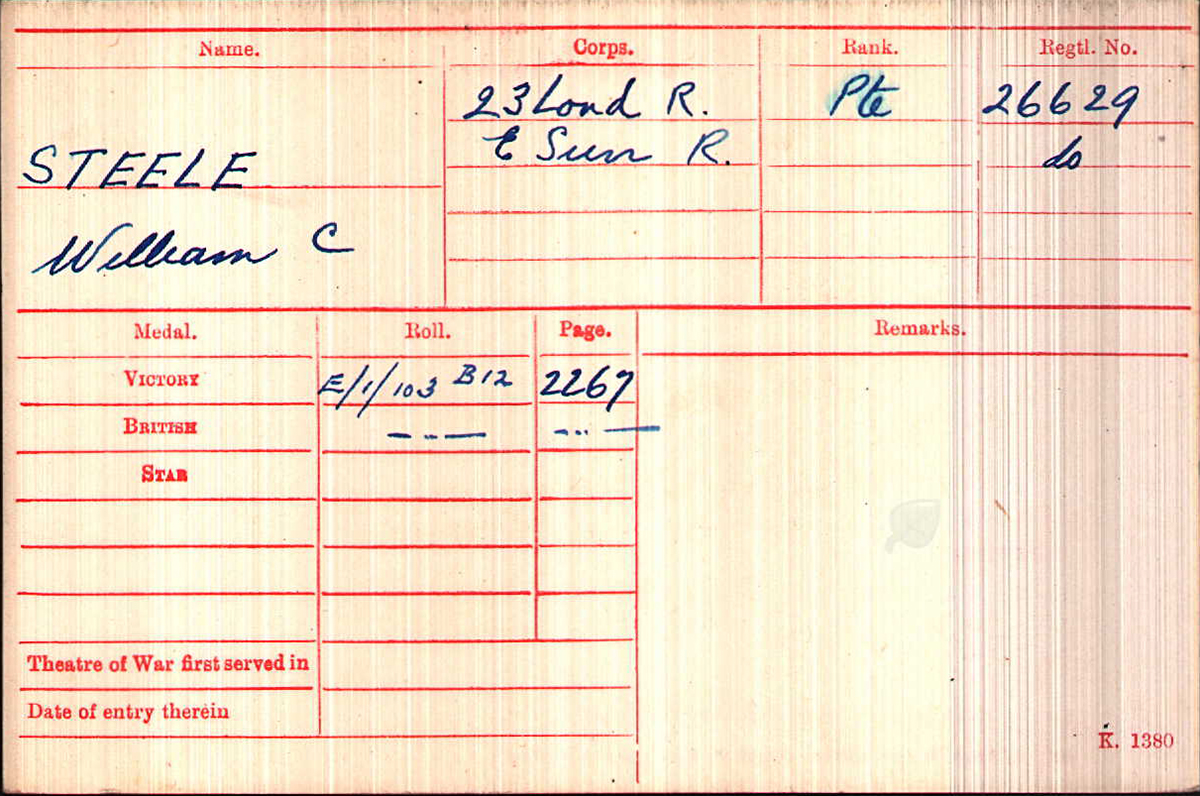 Name. Corps. Rank. Regtl. No.
23 Lond R. Pte 26629
STEELE E Surr R. do
William C
Medal. Roll. Page. Remarks.
VICTORY E/1/103 B12 2267
BRITISH — " — — " —
STAR
Theatre of War first served in
Date of entry therein
K. 1380